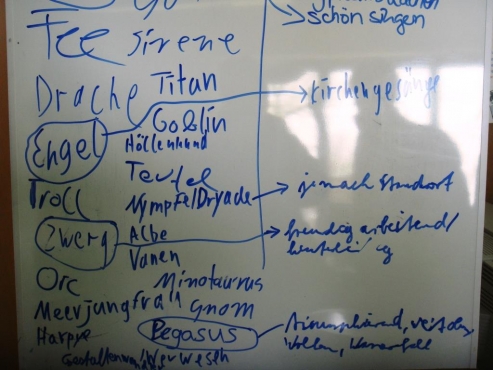 schön singen
Fee Sirene
Drache Titan
Kirchengesänge
Goblin
Engel Höllenhund
Teufel
Troll Nympfe/Dryade je nach Standort
Zwerg Albe freudig arbeitend/
Vanen
Orc Minotaurus
Meerjungfrau Gnom
Harpye Pegasus
Werwesen